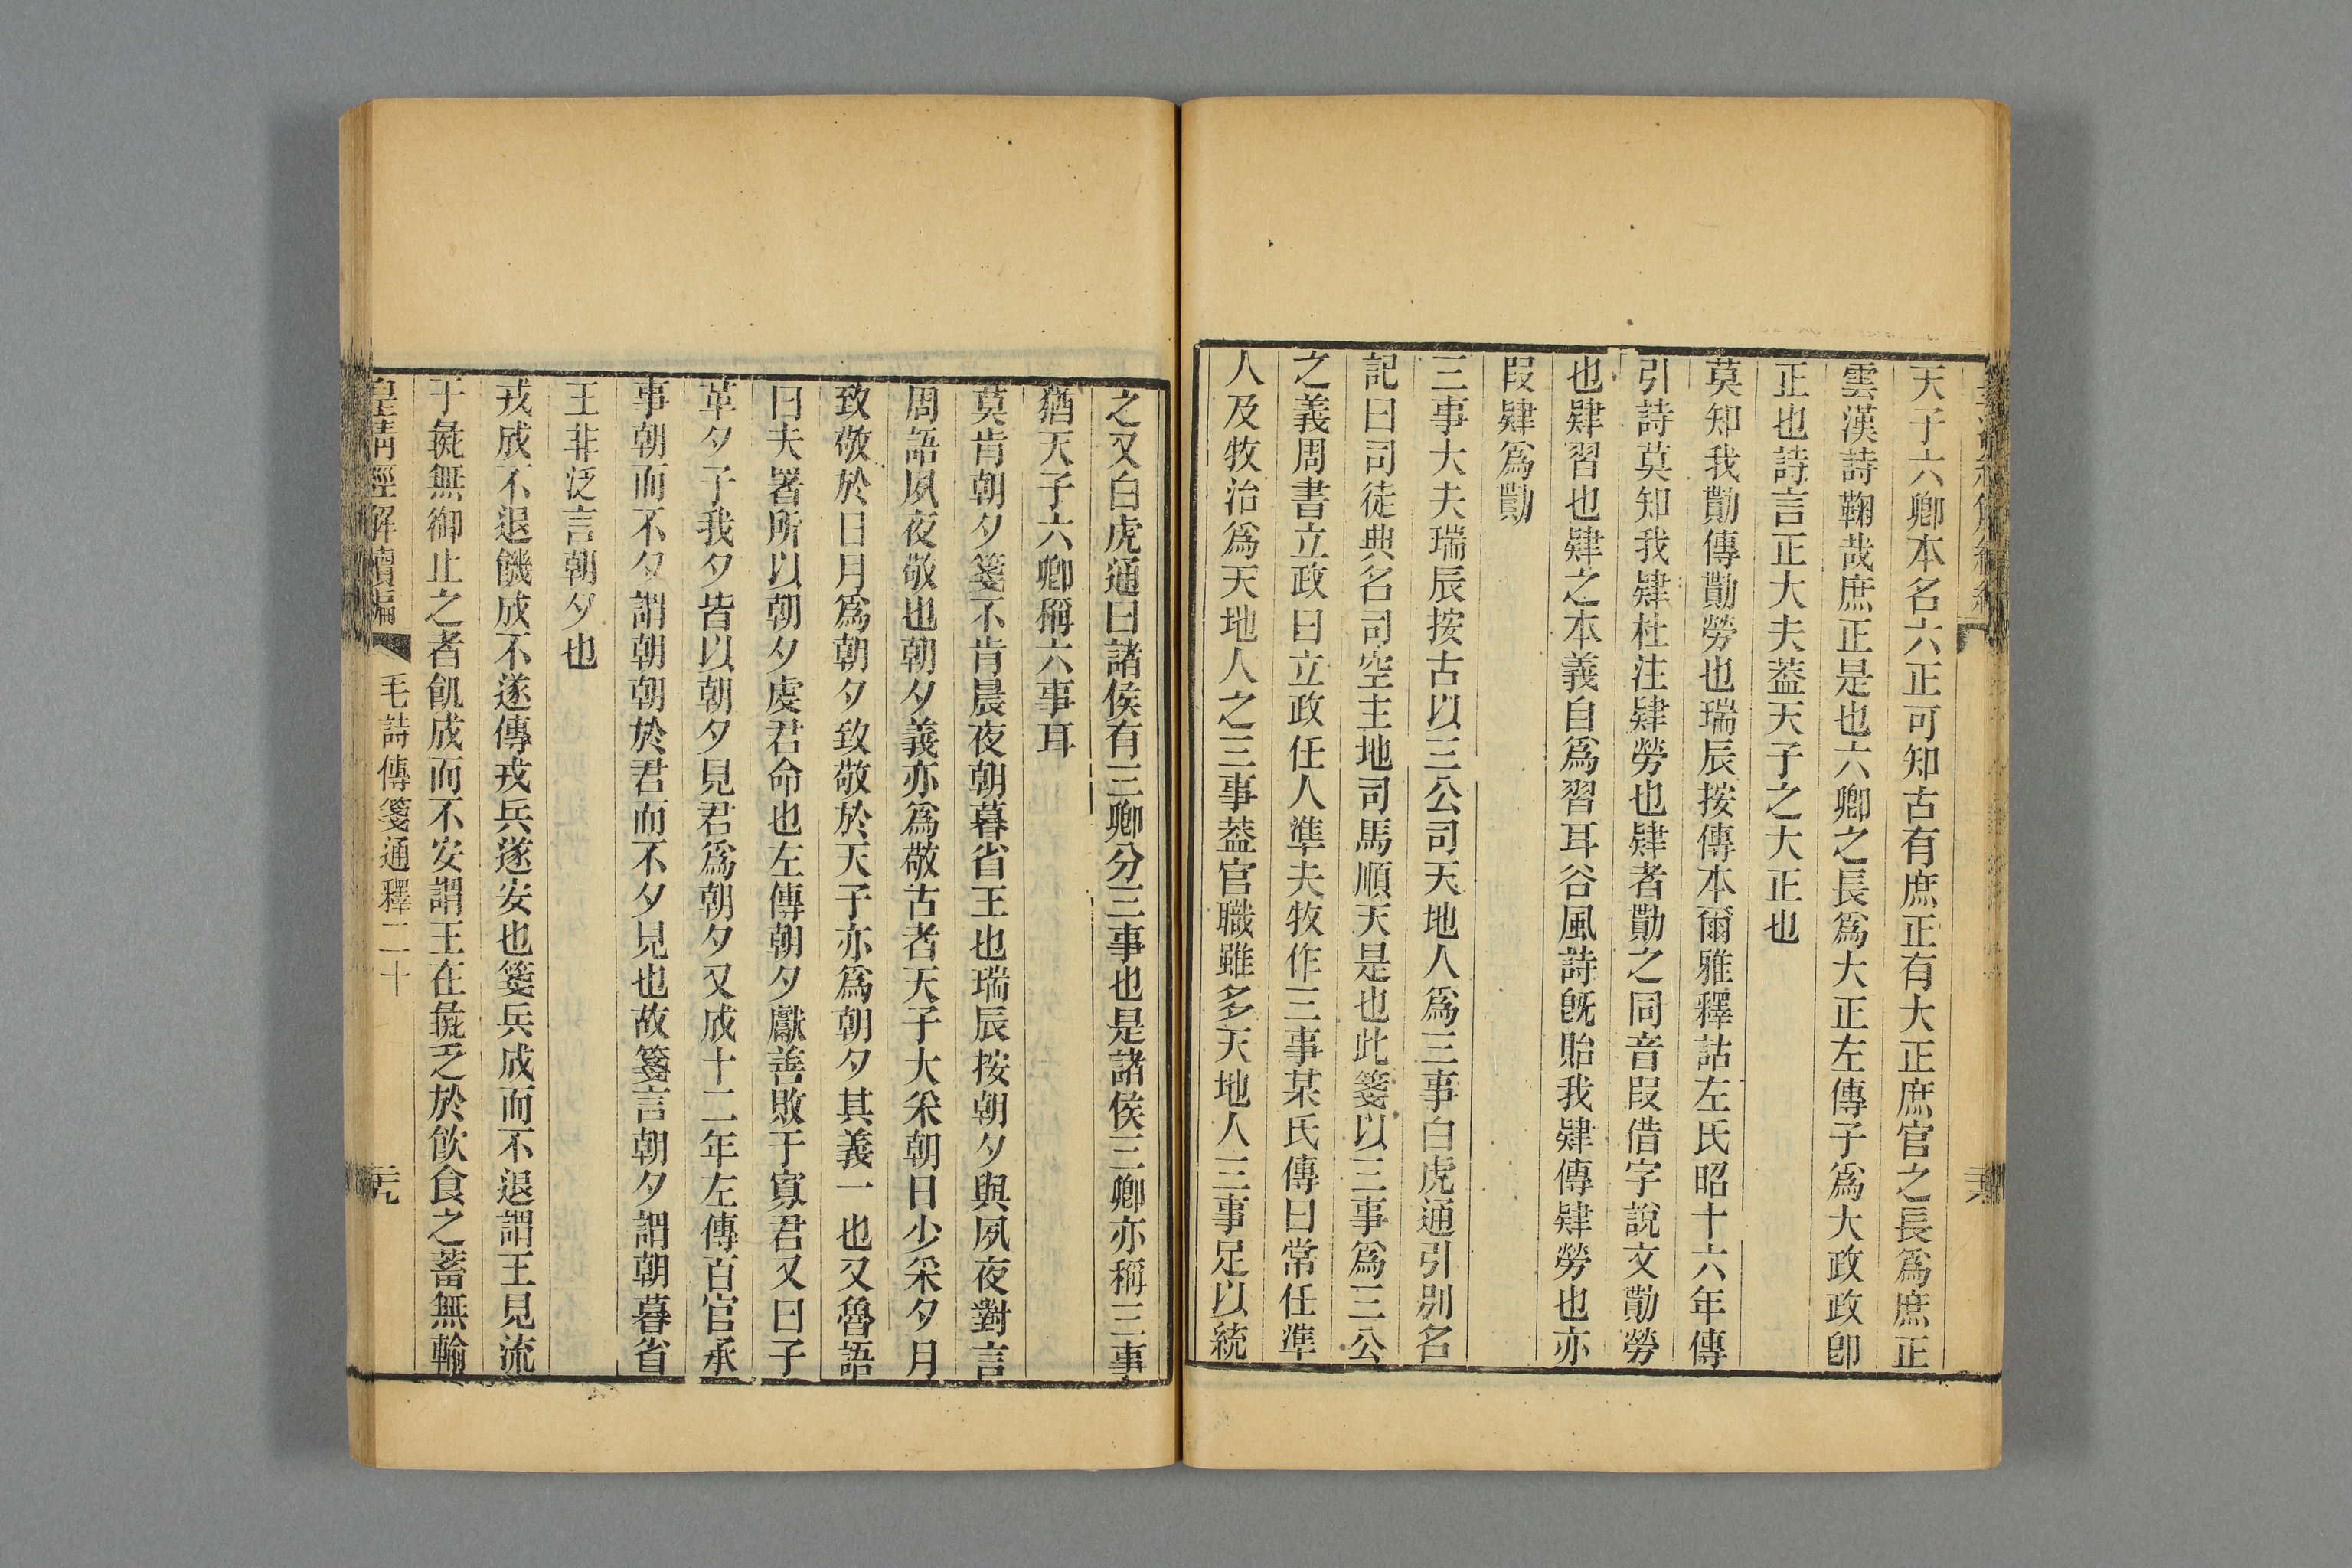 天子六卿本名六正可知古有庶正有大正庶官之長爲庶正
雲漢詩鞠哉庶正是也六卿之長爲大正左傳子爲大政政卽
正也詩言正大夫葢天子之大正也
莫知我勩傳勩勞也瑞辰按傳本爾雅釋詁左氏昭十六年傳
引詩莫知我肄杜注肄勞也肄者勩之同音叚借字說文勩勞
也肄習也肄之本義自爲習耳谷風詩旣貽我肄傳肄勞也亦
叚肄爲勩
三事大夫瑞辰按古以三公司天地人爲三事白虎通引別名
記曰司徒典名司空主地司馬順天是也此箋以三事爲三公
之義周書立政曰立政任人準夫牧作三事某氏傳曰常任準
人及牧治爲天地人之三事葢官職雖多天地人三事足以統
之又白虎通曰諸侯有三卿分三事也是諸侯三卿亦稱三事
猶天子六卿稱六事耳
莫肯朝夕箋不肯晨夜朝暮省王也瑞辰按朝夕與夙夜對言
周語夙夜敬也朝夕義亦爲敬古者天子大采朝日少采夕月
致敬於日月爲朝夕致敬於天子亦爲朝夕其義一也又魯語
曰夫署所以朝夕虔君命也左傳朝夕獻善敗于寡君又曰子
革夕子我夕皆以朝夕見君爲朝夕又成十二年左傳百官承
事朝而不夕謂朝朝於君而不夕見也故箋言朝夕謂朝暮省
王非泛言朝夕也
戎成不退饑成不遂傳戎兵遂安也箋兵成而不退謂王見流
于彘無御止之者飢成而不安謂王在彘乏於飲食之蓄無輸
皇清經解續編 毛詩傳箋通釋二十 元